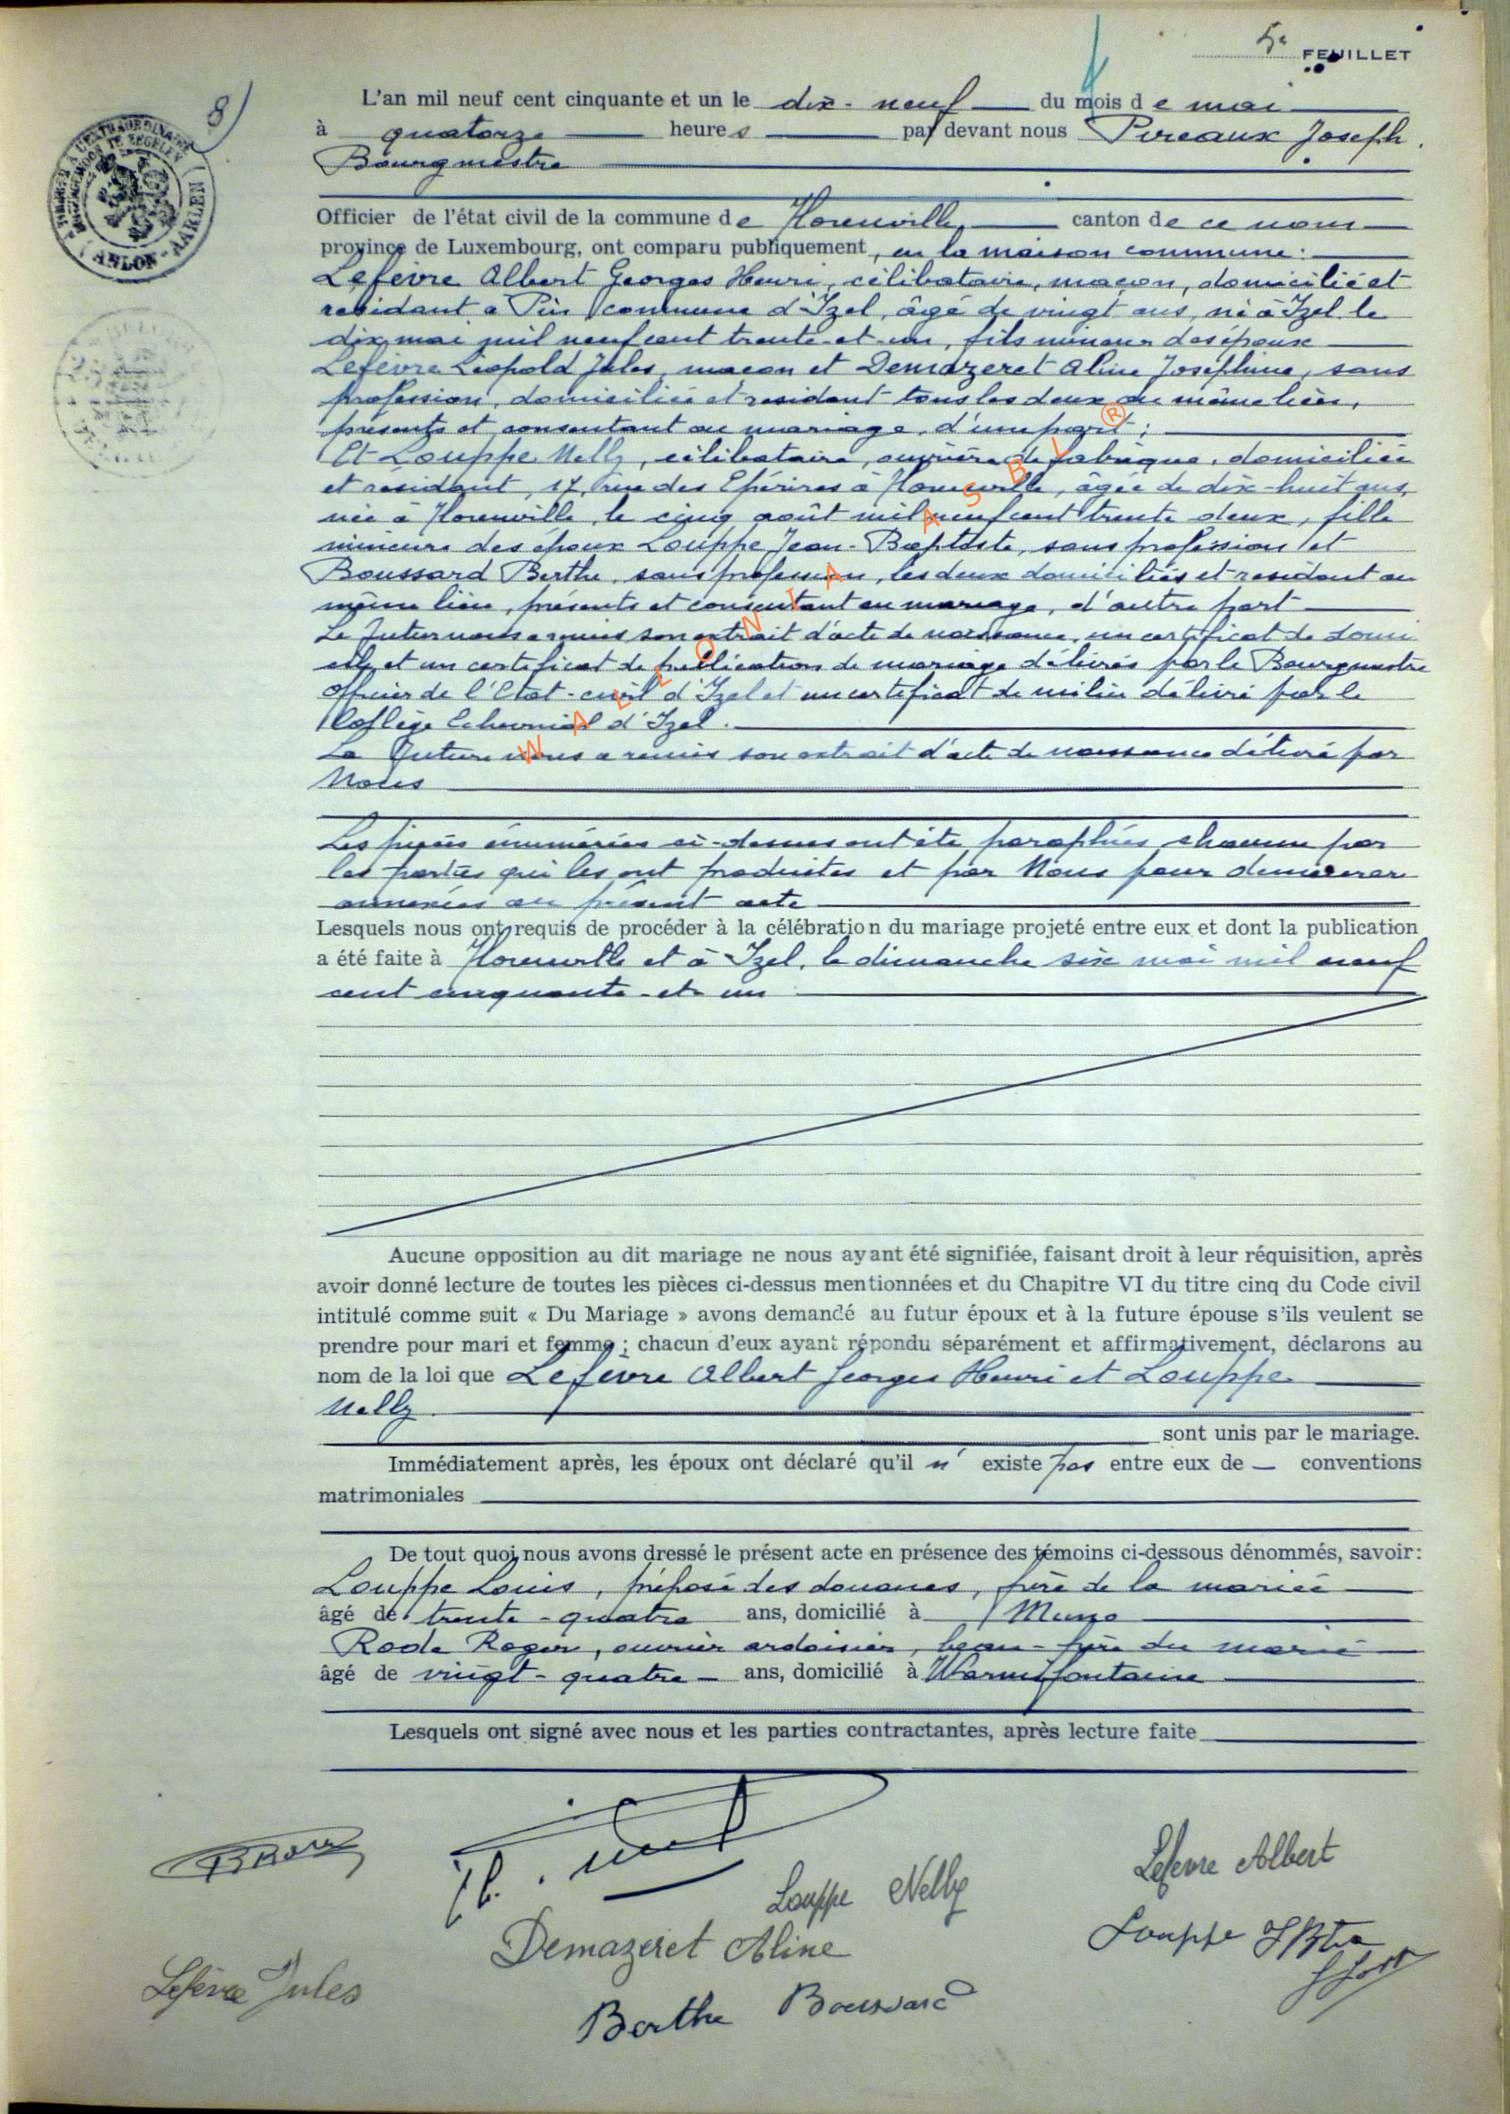 5e FEUILLET
8)
L'an mil neuf cent cinquante et un le dix-neuf du mois de mai
à quatorze heures par devant nous Pireaux Joseph,
Bourgmestre
Officier de l'état civil de la commune de Florenville canton de ce nom
province de Luxembourg, ont comparu publiquement, en la maison commune :
Lefèvre Albert Georges Henri, célibataire, maçon, domicilié et
résidant à Pin commune d'Izel, âgé de vingt ans, né à Izel le
dix mai mil neuf cent trente-et-un, fils mineur des époux
Lefèvre Léopold Jules, maçon et Demazeret Aline Joséphine, sans
profession, domiciliés et résidant tous les deux au même lieu,
présents et consentant au mariage, d'une part ;
Et Louppe Nelly, célibataire, ouvrière de fabrique, domiciliée
et résidant, 17, rue des Epérires à Florenville, âgée de dix-huit ans,
née à Florenville, le cinq août mil neuf cent trente deux, fille
mineure des époux Louppe Jean-Baptiste, sans profession et
Boussard Berthe, sans profession, les deux domiciliés et résidant au
même lieu, présents et consentant au mariage, d'autre part
Le futur nous a remis son extrait d'acte de naissance, un certificat de domi
cile et un certificat de publication de mariage délivrés par le Bourgmestre
Officier de l'Etat-civil d'Izel et un certificat de milice délivré par le
Collège Echevinal d'Izel.
La future nous a remis son extrait d'acte de naissance délivré par
Nous
Les pièces énumérées ci-dessus ont été paraphées chacune par
les parties qui les ont produites et par Nous pour demeurer
annexées au présent acte
Lesquels nous ont requis de procéder à la célébration du mariage projeté entre eux et dont la publication
a été faite à Florenville et à Izel, le dimanche six mai mil neuf
cent cinquante-et-un
Aucune opposition au dit mariage ne nous ayant été signifiée, faisant droit à leur réquisition, après
avoir donné lecture de toutes les pièces ci-dessus mentionnées et du Chapitre VI du titre cinq du Code civil
intitulé comme suit « Du Mariage » avons demandé au futur époux et à la future épouse s'ils veulent se
prendre pour mari et femme ; chacun d'eux ayant répondu séparément et affirmativement, déclarons au
nom de la loi que Lefèvre Albert Georges Henri et Louppe
Nelly
sont unis par le mariage.
Immédiatement après, les époux ont déclaré qu'il n' existe pas entre eux de — conventions
matrimoniales
De tout quoi nous avons dressé le présent acte en présence des témoins ci-dessous dénommés, savoir :
Louppe Louis, préposé des douanes, frère de la mariée
âgé de trente-quatre ans, domicilié à Muno
Rode Roger, ouvrier ardoisier, beau-frère du marié
âgé de vingt-quatre ans, domicilié à Warmifontaine
Lesquels ont signé avec nous et les parties contractantes, après lecture faite
Lefevre Albert
Louppe Nelly
Louppe JBte
Demazeret Aline
Lefèvre Jules
Berthe Boussard
WALLONIA ASBL ®
ARLON